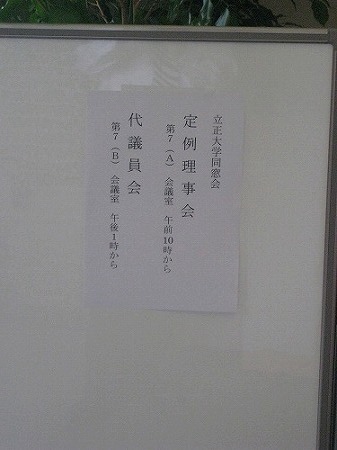 立正大学同窓会
定例理事会
第7(A) 会議室 午前10時から
代議員会
第7(B) 会議室 午後1時から